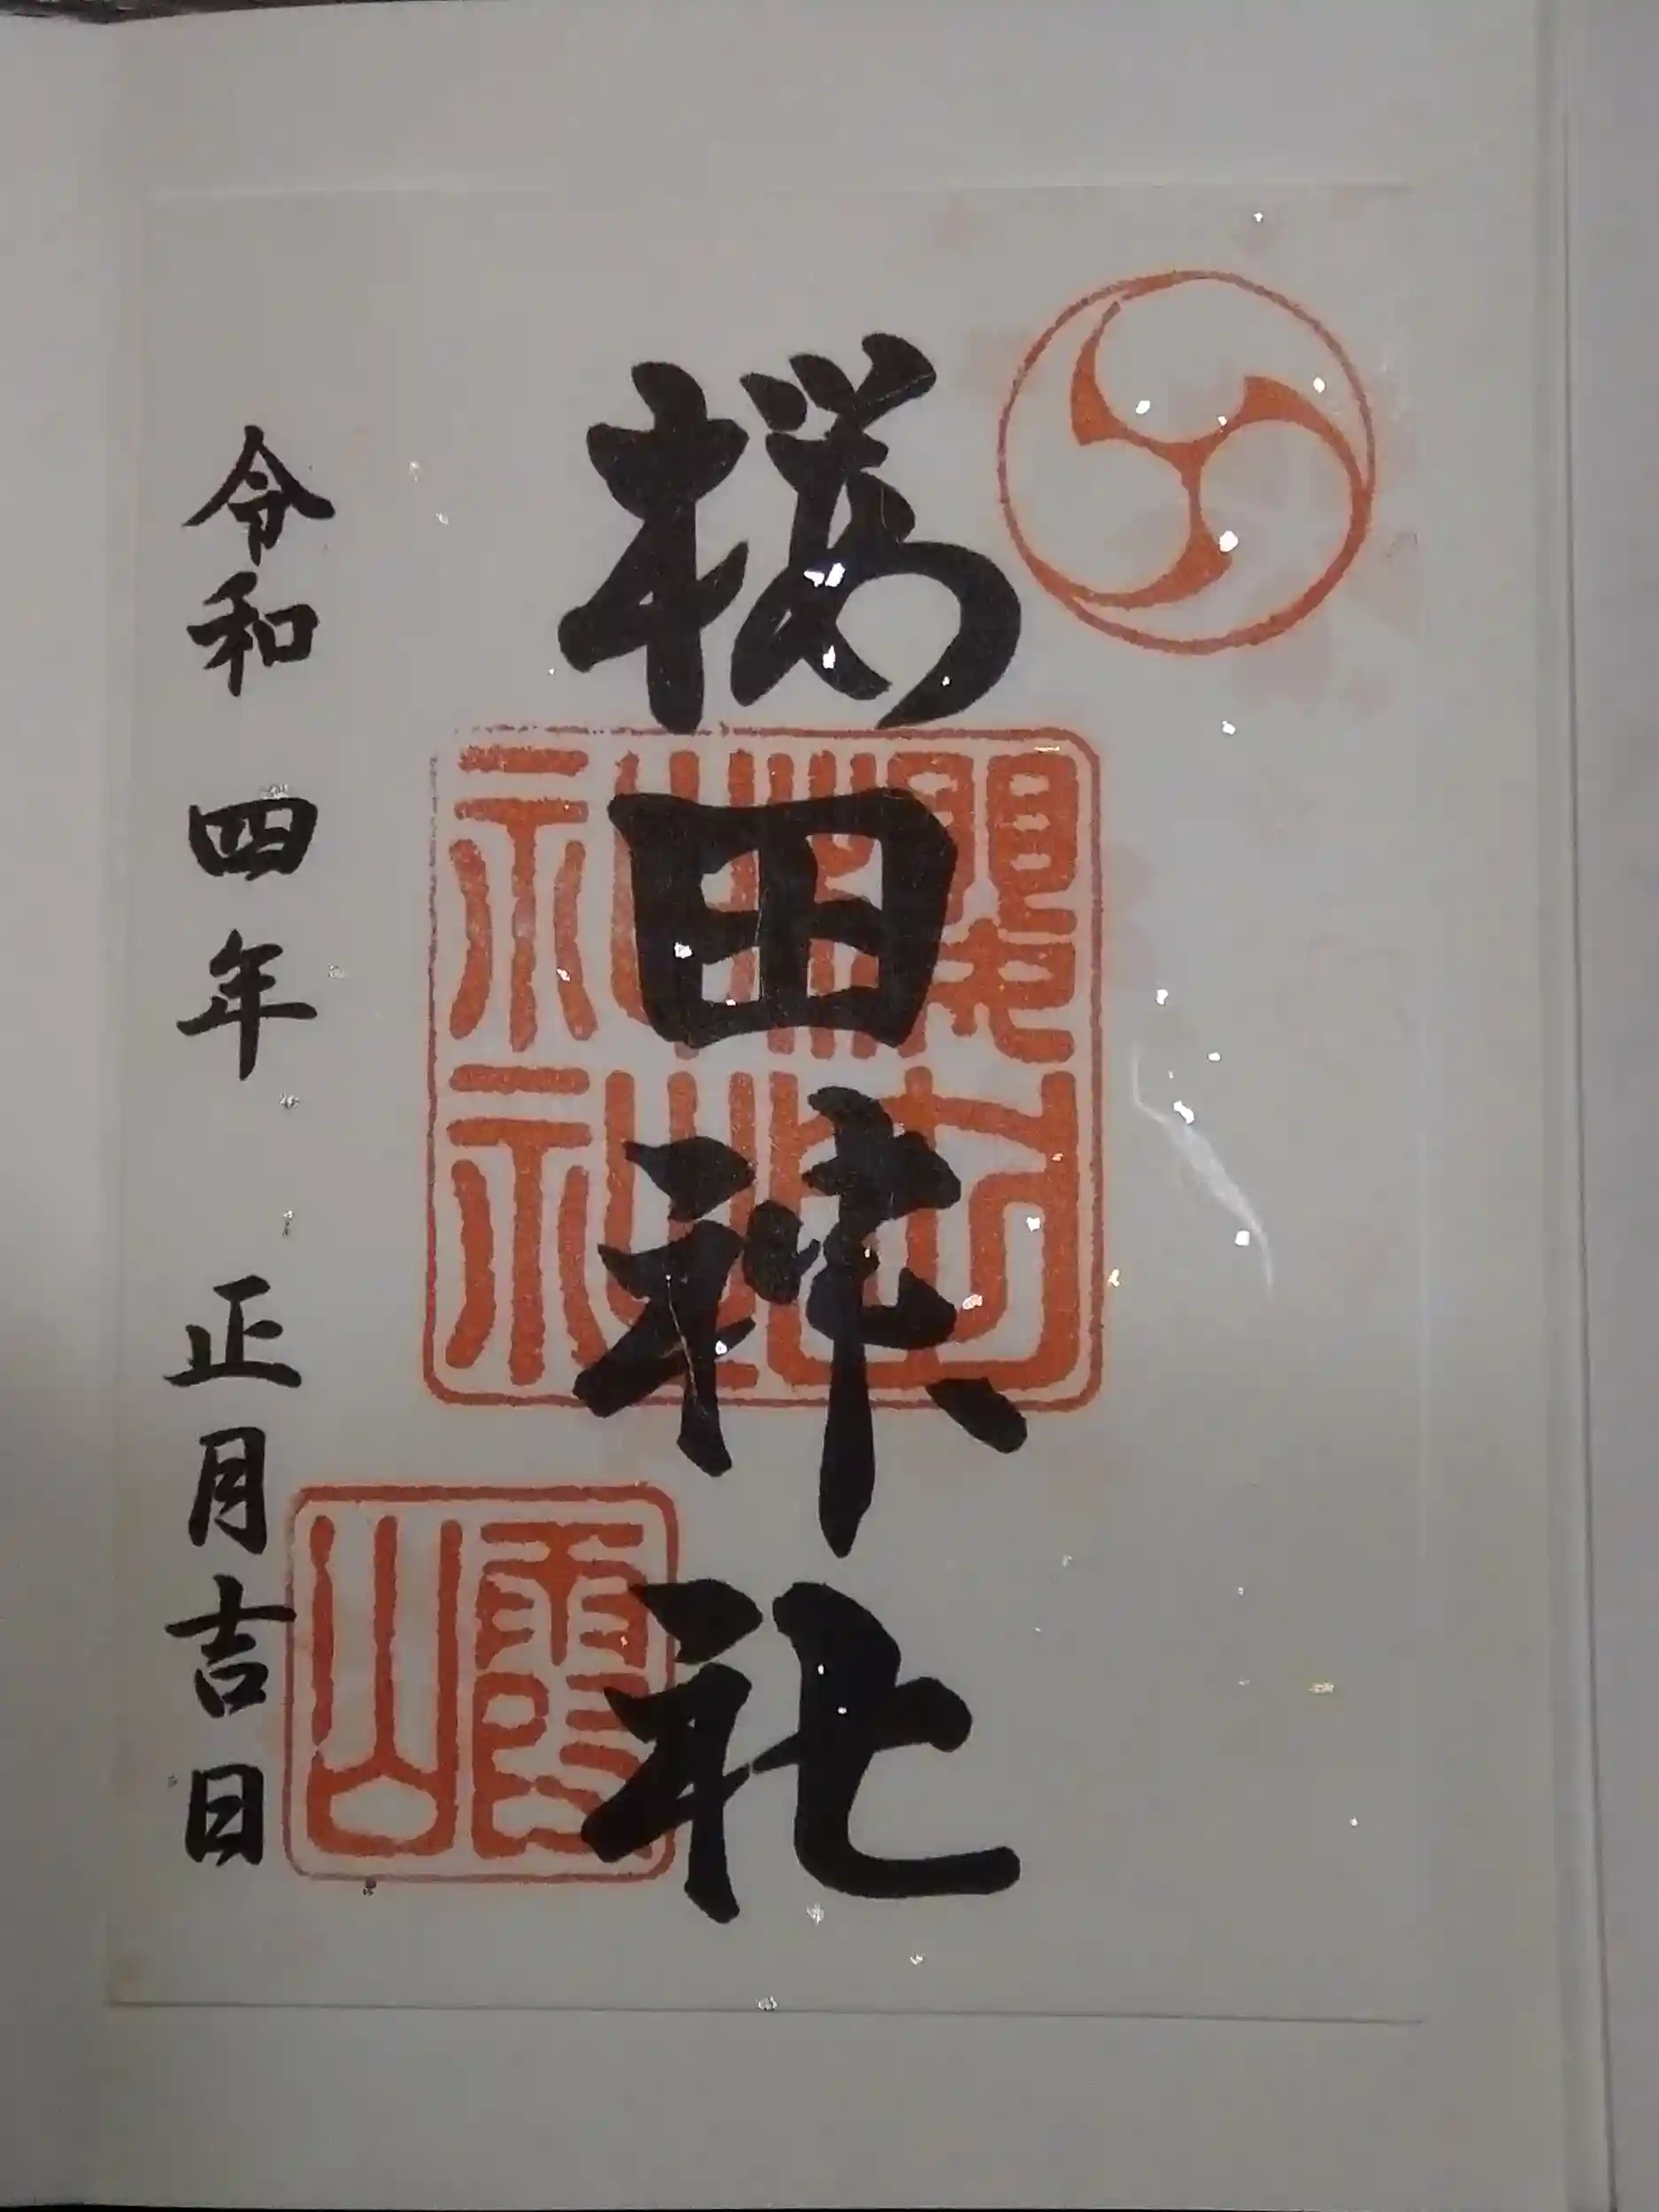 桜田神社
櫻田神社
霞山
令和四年 正月吉日